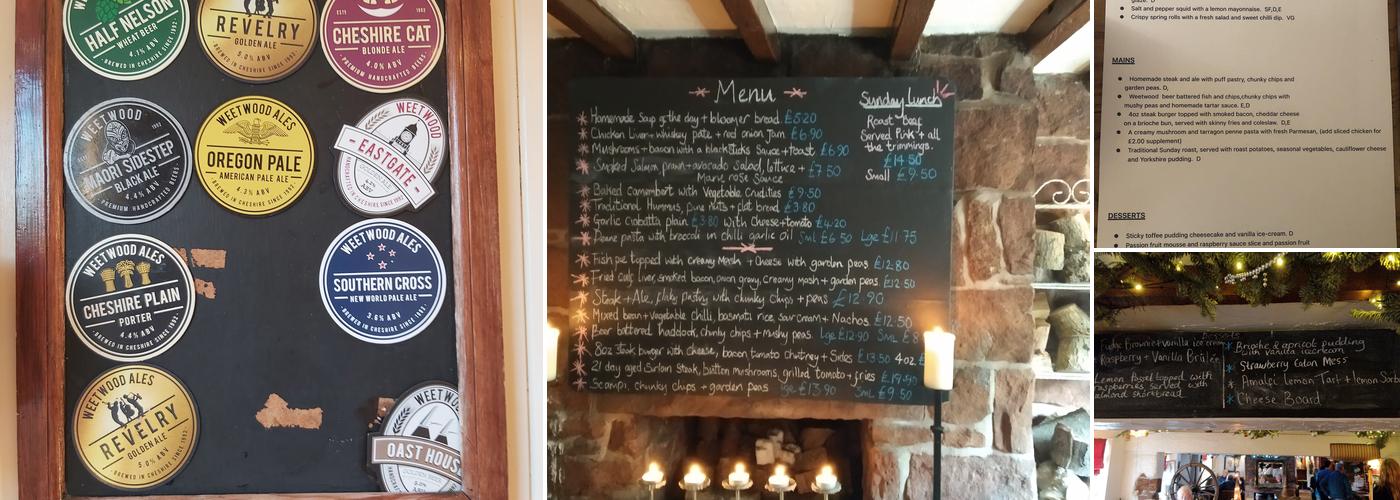 HALF NELSON
WHEAT BEER
4.7% ABV
BREWED IN CHESHIRE SINCE 1992
REVELRY
GOLDEN ALE
5.0% ABV
BREWED IN CHESHIRE SINCE 1992
CHESHIRE CAT
BLONDE ALE
4.0% ABV
PREMIUM HANDCRAFTED BEERS
WEETWOOD
MAORI SIDESTEP
BLACK ALE
4.4% ABV
PREMIUM HANDCRAFTED BEERS
WEETWOOD ALES
OREGON PALE
AMERICAN PALE ALE
4.3% ABV
BREWED IN CHESHIRE SINCE 1992
WEETWOOD
EASTGATE
HANDCRAFTED IN CHESHIRE SINCE 1992
WEETWOOD ALES
CHESHIRE PLAIN
PORTER
4.4% ABV
BREWED IN CHESHIRE SINCE 1992
WEETWOOD ALES
SOUTHERN CROSS
NEW WORLD PALE ALE
3.6% ABV
BREWED IN CHESHIRE SINCE 1992
WEETWOOD ALES
REVELRY
GOLDEN ALE
5.0% ABV
BREWED IN CHESHIRE SINCE 1992
WEETWOOD
OAST HOUS
Menu
Homemade Soup of the day + bloomer bread £5.20
Chicken Liver + whiskey pate + red onion Jam £6.90
Mushrooms + bacon with a blacksticks Sauce + toast £6.90
Smoked Salmon, prawn + avocado salad, lettuce + £7.50
Marie rose Sauce
Baked camembert with Vegetable Crudities £9.50
Traditional Hummus, pine nuts + flat bread £3.80
Garlic Ciabatta plain £3.80 with Cheese + tomato £4.20
Penne pasta with broccoli in chilli garlic oil Sml £6.50 Lge £11.75
Fish pie topped with creamy Mash + Cheese with garden peas £12.80
Fried calf liver, smoked bacon, onion gravy, creamy mash + garden peas £12.50
Steak + Ale, flaky pastry with chunky chips + peas £12.90
Mixed bean + vegetable chilli, basmati rice, sour cream + Nachos £12.50
Beer battered haddock, chunky chips + mushy peas Lge £12.90 Sml £8
8oz Steak burger with cheese, bacon tomato chutney + Sides £13.50 4oz £
21 day aged Sirloin Steak, button mushrooms, grilled tomato + fries £19.50
Scampi, chunky chips + garden peas lge £13.90 Sml £9.50
Sunday Lunch
Roast Beef
Served Pink + all
the trimmings.
£14.50
Small £9.50
glaze. D
Salt and pepper squid with a lemon mayonnaise. SF,D,E
Crispy spring rolls with a fresh salad and sweet chilli dip. VG
MAINS
Homemade steak and ale with puff pastry, chunky chips and
garden peas. D,
Weetwood beer battered fish and chips,chunky chips with
mushy peas and homemade tartar sauce. E,D
4oz steak burger topped with smoked bacon, cheddar cheese
on a brioche bun, served with skinny fries and coleslaw. D,E
A creamy mushroom and tarragon penne pasta with fresh Parmesan, (add sliced chicken for
£2.00 supplement)
Traditional Sunday roast, served with roast potatoes, seasonal vegetables, cauliflower cheese
and Yorkshire pudding. D
DESSERTS
Sticky toffee pudding cheesecake and vanilla ice-cream. D
Passion fruit mousse and raspberry sauce slice and passion fruit
Fudge Brownie + vanilla ice cream
Raspberry + Vanilla Brûlée
Lemon Posset topped with
raspberries served with
almond shortbread
Brioche & apricot pudding
with vanilla icecream
Strawberry Eaton Mess
Amalfi Lemon Tart + lemon
Cheese Board